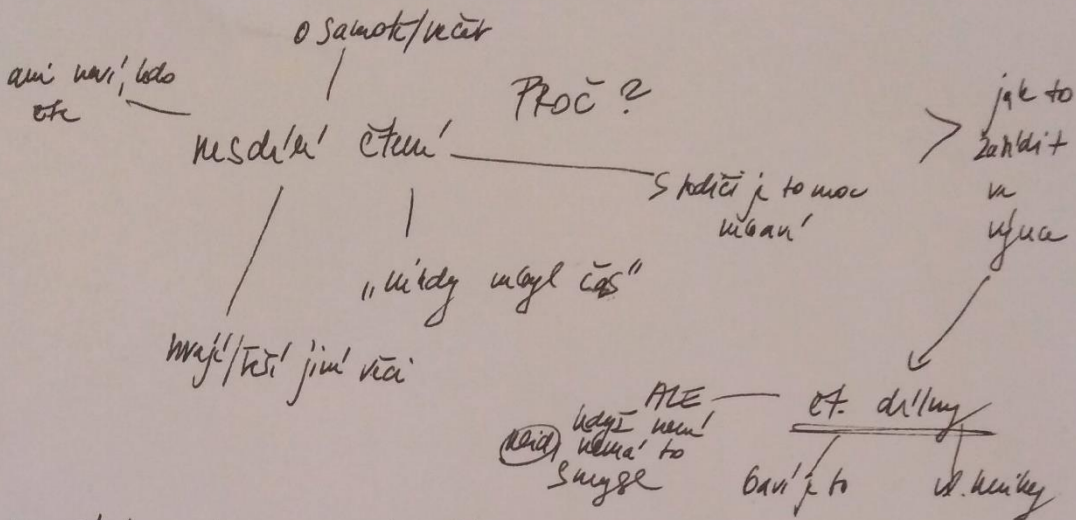 o samotě/večer
ani neví, kdo
čte
PROČ?
nesdílí čtení
s rodiči je to moc
nebaví
jak to
zařídit
ve
výuce
„nikdy nebyl čas“
hrají/řeší jiné věci
ALE
když není
klid nemá to
smysl
čt. dílny
baví je to
vl. knihy